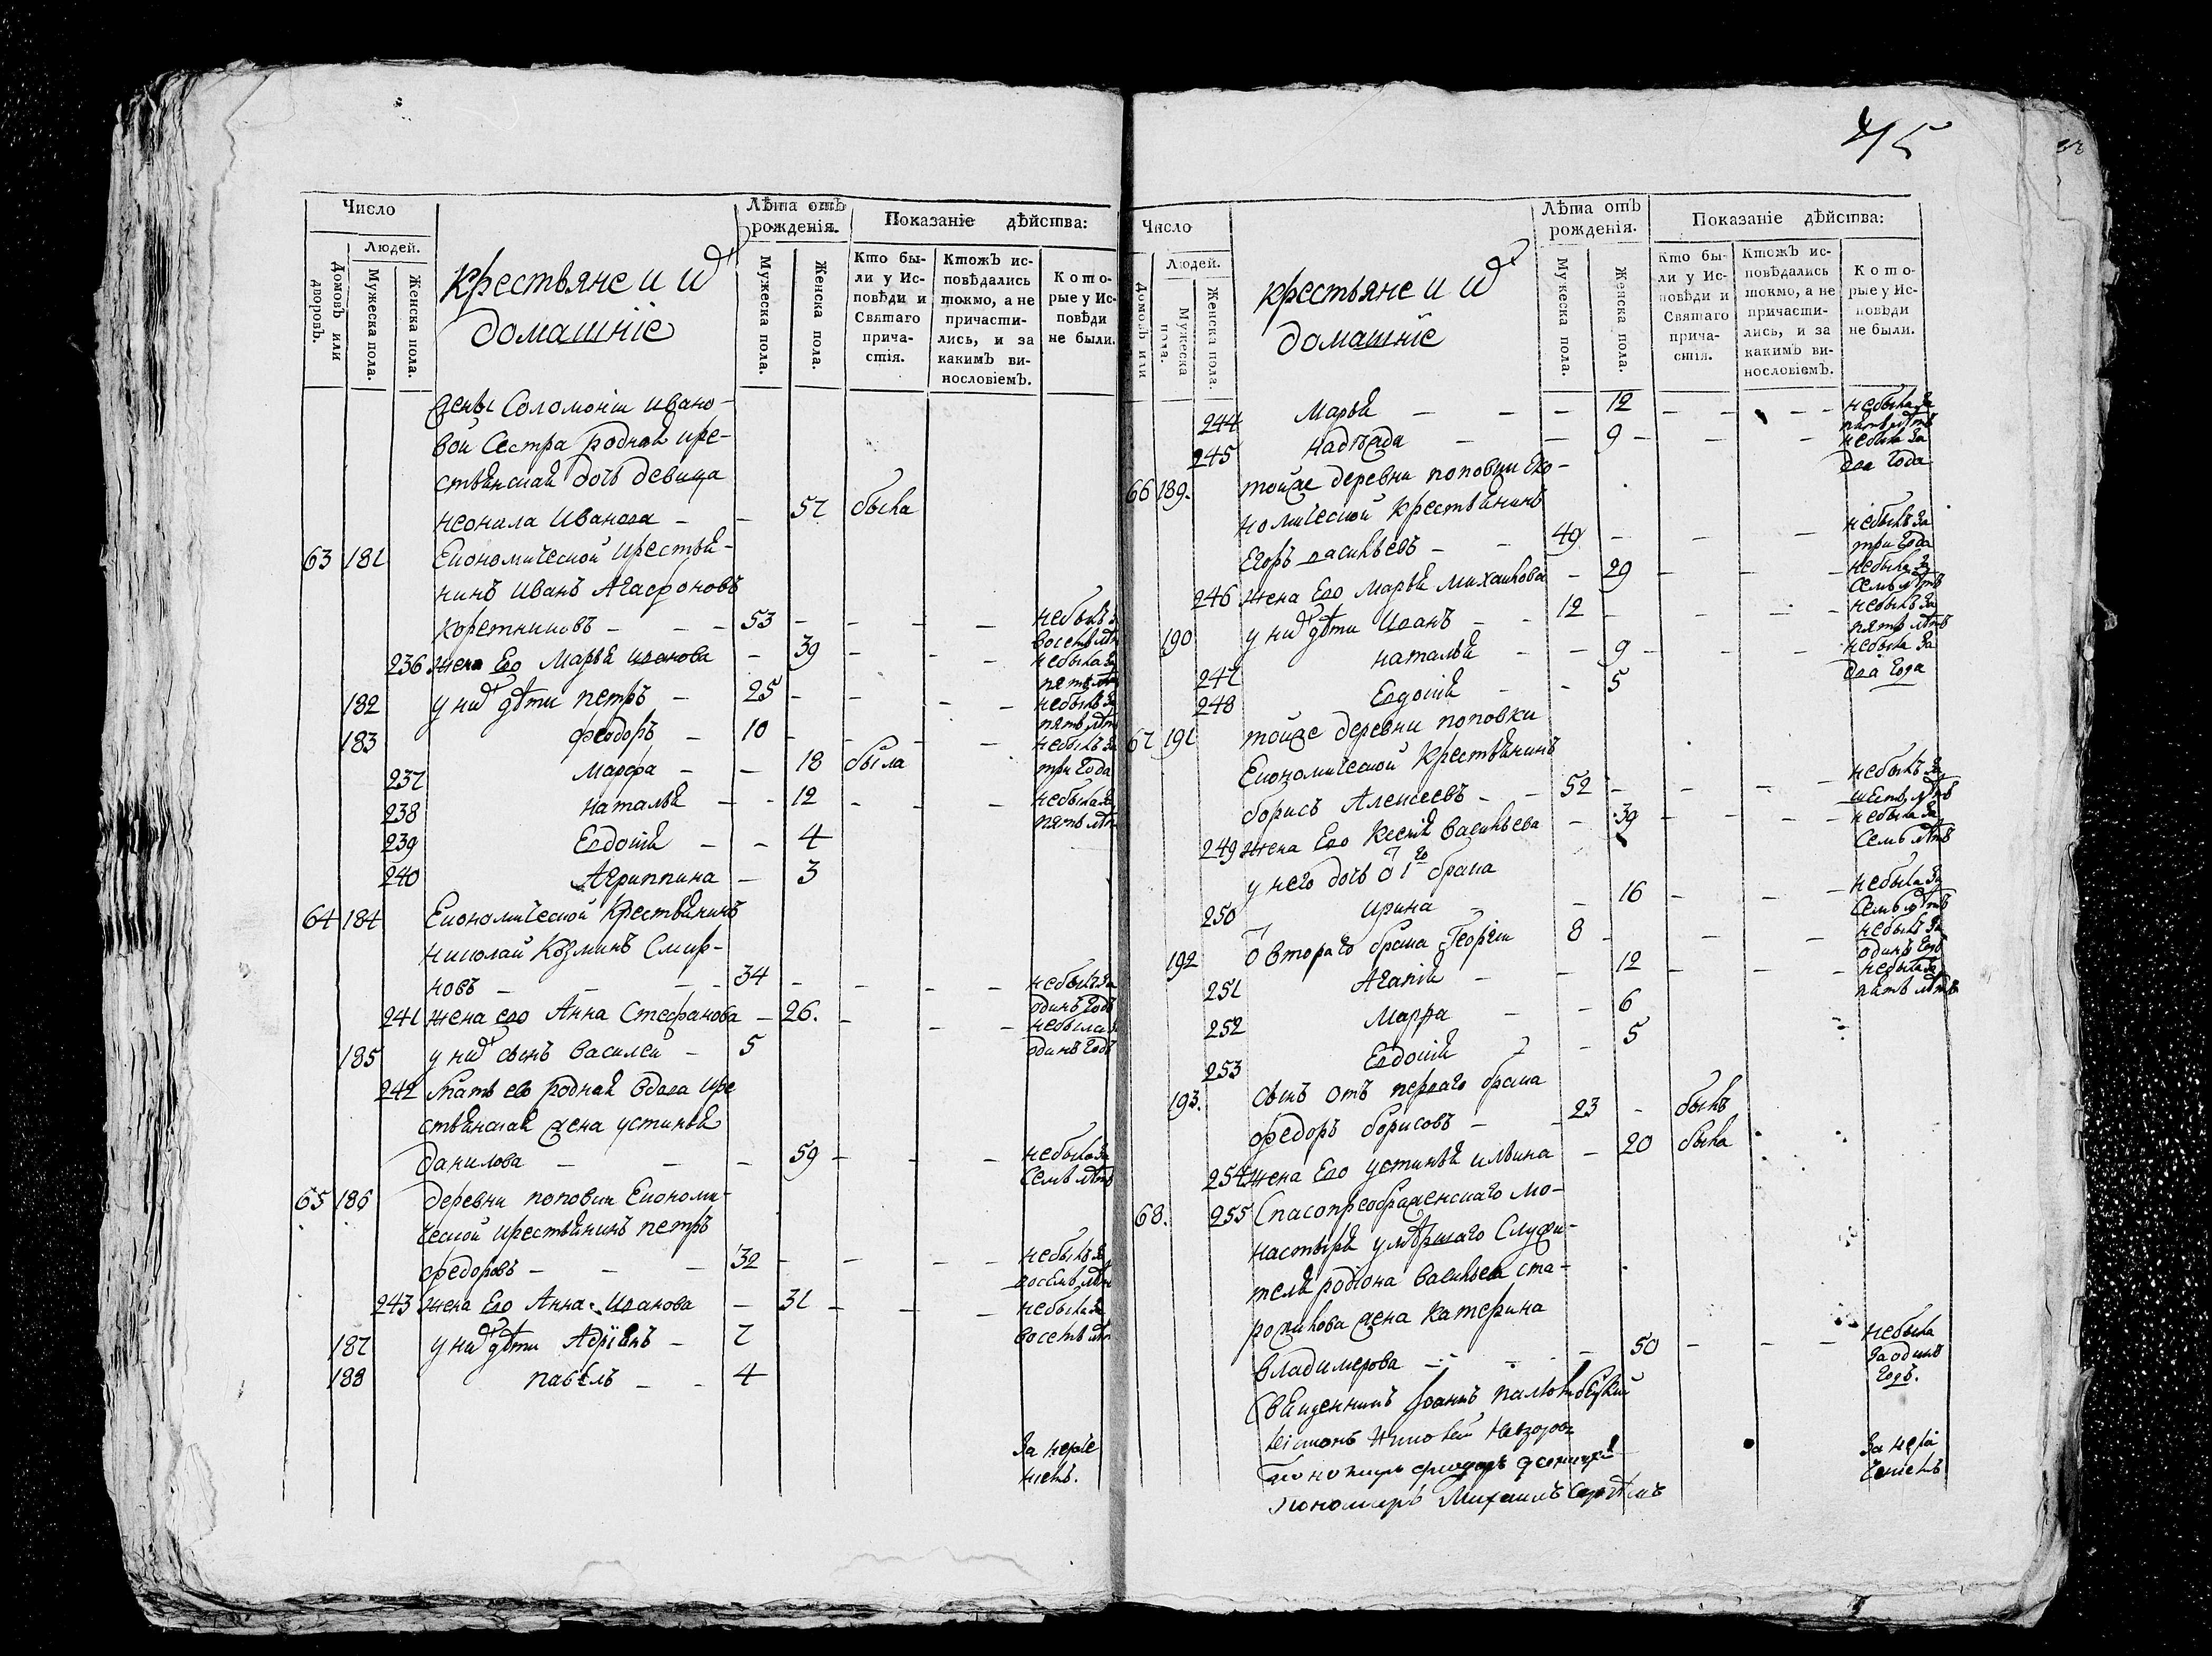 Число
Людей.
Домовъ или дворовъ.
Мужеска пола.
Женска пола.
крестьяне и их
домашніе
Лѣта отъ рожденія.
Мужеска пола.
Женска пола.
Показаніе дѣйства:
Кто были у Исповѣди и Святаго причастія.
Ктожъ исповѣдались токмо, а не причастились, и за какимъ винословіемъ.
Которые у Исповѣди не были.
жены Соломоніи ивано-
вой Сестра родная кре-
стьянская дочь девица
неонила Иванова - - 57 была
63 181 Економической крестья-
нинъ Иванъ Агафоновъ
коретниковъ - - - 53 - - - - небылъ за восемь лѣтъ
236 жена Его Марья иванова - 39 - - - небыла за пять лѣтъ
182 у них дѣти петръ - 25 - - - - небылъ за пять лѣтъ
183 феодоръ - 10 - - - - небылъ за три года
237 Марфа - - 18 была
238 наталья - - 12 - - небыла за пять лѣтъ
239 Евдокія - - 4
240 Агриппина - 3
64 184 Економической крестьянинъ
николай Козминъ Смир-
новъ - - - - 34 - - - - небылъ за одинъ годъ
241 жена его Анна Стефанова - 26. - - - небыла за одинъ годъ
185 у них сынъ василей - 5
242 мать его родная вдова кре
стьянская жена устинья
данилова - - - 59 - - - небыла за Семь лѣтъ
65 186 деревни поповки Економи-
ческой крестьянинъ петръ
федоровъ - - - 32 - - - - небылъ за восемь лѣтъ
243 жена Его Анна Иванова - 31 - - - небыла за восемь лѣтъ
187 у них дѣти Адріянъ - 7
188 павелъ - - 4
415
Число
Людей.
Домовъ или
Мужеска пола.
Женска пола.
крестьяне и их
домашніе
Лѣта отъ рожденія.
Мужеска пола.
Женска пола.
Показаніе дѣйства:
Кто были у Исповѣди и Святаго причастія.
Ктожъ исповѣдались токмо, а не причастились, и за какимъ винословіемъ.
Которые у Исповѣди не были.
244 Марья - - - 12 - - - - небыла за пять лѣтъ
245 надѣжда - - 9 - - - небыла за два года
66 189. тойже деревни поповки Еко-
номической крестьянинъ
Егоръ васильевъ - - 49 - - - небылъ за три года
246 жена Его марья михаилова - 29 - - - небыла за Семь лѣтъ
190 у них дѣти Иванъ - - 12 - - - - небылъ за пять лѣтъ
247 наталья - - 9 - - - небыла за два года
248 Евдокія - - 5
67 191 тойже деревни поповки
Економической крестьянинъ
борисъ Алексеевъ - - 52 - - - - небылъ за шесть лѣтъ
249 жена Его Ксенія васильева - 39 - - - - небыла за Семь лѣтъ
у него дочь от 1го брака
250 ирина - - 16 - - - небыла за Семь лѣтъ
192 от втораго брака Георгіи 8 - - - небылъ за одинъ годъ
251 Агапія - - 12 - - - небыла за пять лѣтъ
252 Марфа - - 6
253 Евдокія - 5
193. Сынъ отъ перваго брака
федоръ борисовъ - - 23 - былъ
254 жена Его устинья ильина - 20 была
68. 255 Спасопреображенскаго мо-
настыря умершаго Служи-
теля родіона васильева ста-
жена катерина
владимерова - - - 50 - - - небыла за одинъ годъ.
Священникъ Іоаннъ
Пономарь Михаилъ